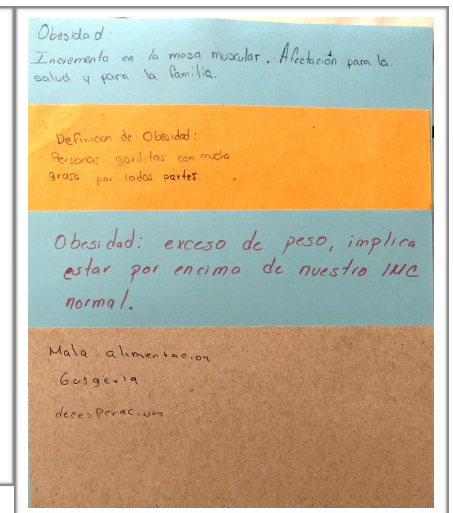 Obesidad:
Incremento en la masa muscular. Afectación para la
salud y para la familia.
Definicon de Obesidad:
Personas gorditas con mucha
grasa por todas partes
Obesidad: exceso de peso, implica
estar por encima de nuestro IMC
normal.
Mala alimentacion
Gusgeria
decesperacion